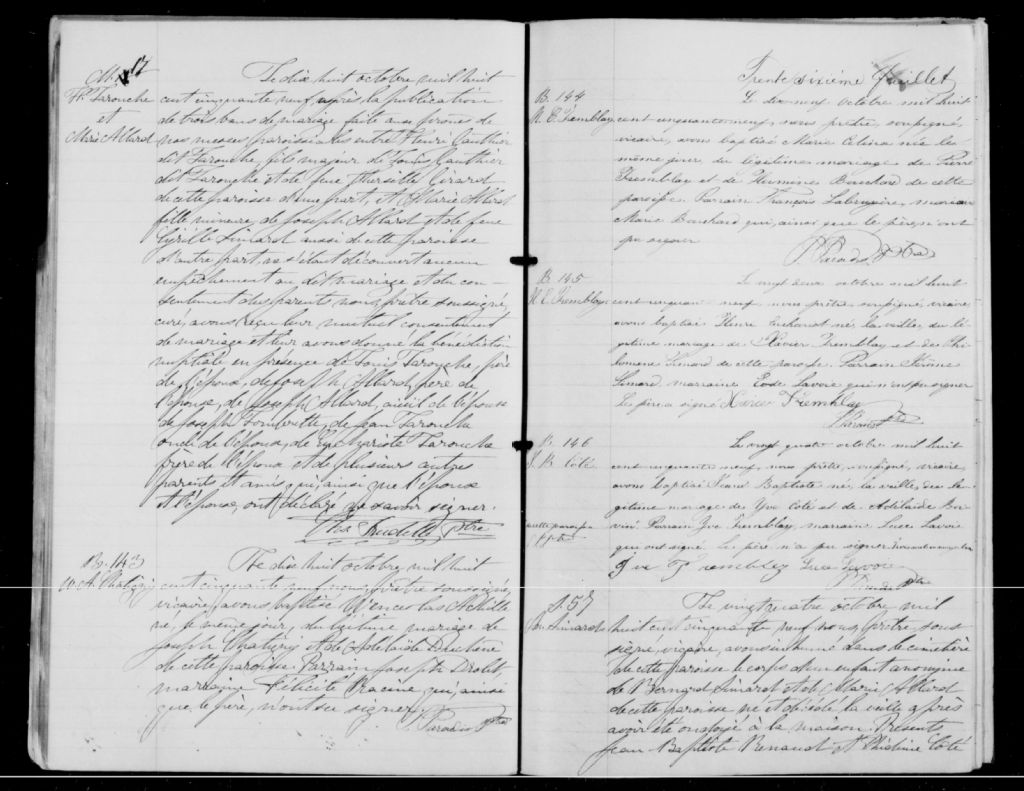 M. 17
H. Larouche
et
Marie Allard
Le dix huit octobre mil huit
cent cinquante neuf, après la publication
de trois bans de mariage faite aux prônes de
nos messes paroissiales entre Henri Gauthier
dit Larouche, fils majeur de Louis Gauthier
dit Larouche et de feue Thersille Girard
de cette paroisse d'une part, et Marie Allard
fille mineure, de Joseph Allard et de feue
Cyrille Simard aussi de cette paroisse
d'autre part, ne s'étant découvert aucun
empêchement au dit mariage et du con-
sentement des parents, nous, prêtre soussigné,
curé, avons reçu leur mutuel consentement
de mariage et leur avons donné la bénédiction
nuptiale en présence de Louis Larouche, père
de l'époux, de Joseph Allard, père de
l'épouse, de Joseph Allard, aieul de l'épouse
de Joseph de Jean Larouche
oncle de l'époux, de Larouche
frère de l'époux et de plusieurs autres
parents et amis qui, ainsi que l'époux
et l'épouse, ont déclaré ne savoir signer.
Trudelle Ptre
B. 143
W. A. Chatigny
Le dix huit octobre, mil huit
cent cinquante neuf, nous, prêtre soussigné,
vicaire, avons baptisé Wenceslas Achille
né, le même jour, du légitime mariage de
Joseph Chatigny et de Adelaide
de cette paroisse. Parrain Joseph Drolet,
marraine Félicité Racine, qui, ainsi
que le père, n'ont su signer.
P. Paradis Ptre
Trente sixième feuillet
B. 144
M. C. Tremblay
Le dix neuf octobre mil huit
cent cinquante neuf, nous prêtre, soussigné,
vicaire, avons baptisé Marie Célina née le
même jour, du légitime mariage de Pierre
Tremblay et de Hermine Bouchard de cette
paroisse. Parrain François Labruyaire, marraine
Marie Bouchard qui, ainsi que le père, n'ont
pu signer
P. Paradis Ptre
B. 145
H. E. Tremblay
Le vingt deux octobre mil huit
cent cinquante neuf, nous prêtre, soussigné, vicaire,
avons baptisé Henri Euchariste né, la veille, du lé-
gitime mariage de Xavier Tremblay et de Phi-
lomène Simard de cette paroisse. Parrain
Simard, marraine Lavoie qui n'ont pu signer
Le père a signé Xavier Tremblay
P. Paradis Ptre
B. 146
J. B. Côté
Le vingt quatre octobre mil huit
cent cinquante neuf, nous prêtre, soussigné, vicaire,
avons baptisé Jean Baptiste né, la veille, du lé-
gitime mariage de Yve Côté et de Adelaide Boi-
vin. Parrain Yve Tremblay, marraine Luce Lavoie
de cette paroisse
qui ont signé. Le père n'a pu signer
Yve Tremblay Luce Lavoie
P. Paradis Ptre
S. 57
Simard
Le vingt quatre octobre mil
huit cent cinquante neuf nous, prêtre, sous-
signé, vicaire, avons inhumé dans le cimetière
de cette paroisse le corps d'un enfant anonyme
de Bernard Simard et de Marie Allard
de cette paroisse né et décédé la veille après
avoir été ondoyé à la maison. Présents
Jean Baptiste Renaud et Côté